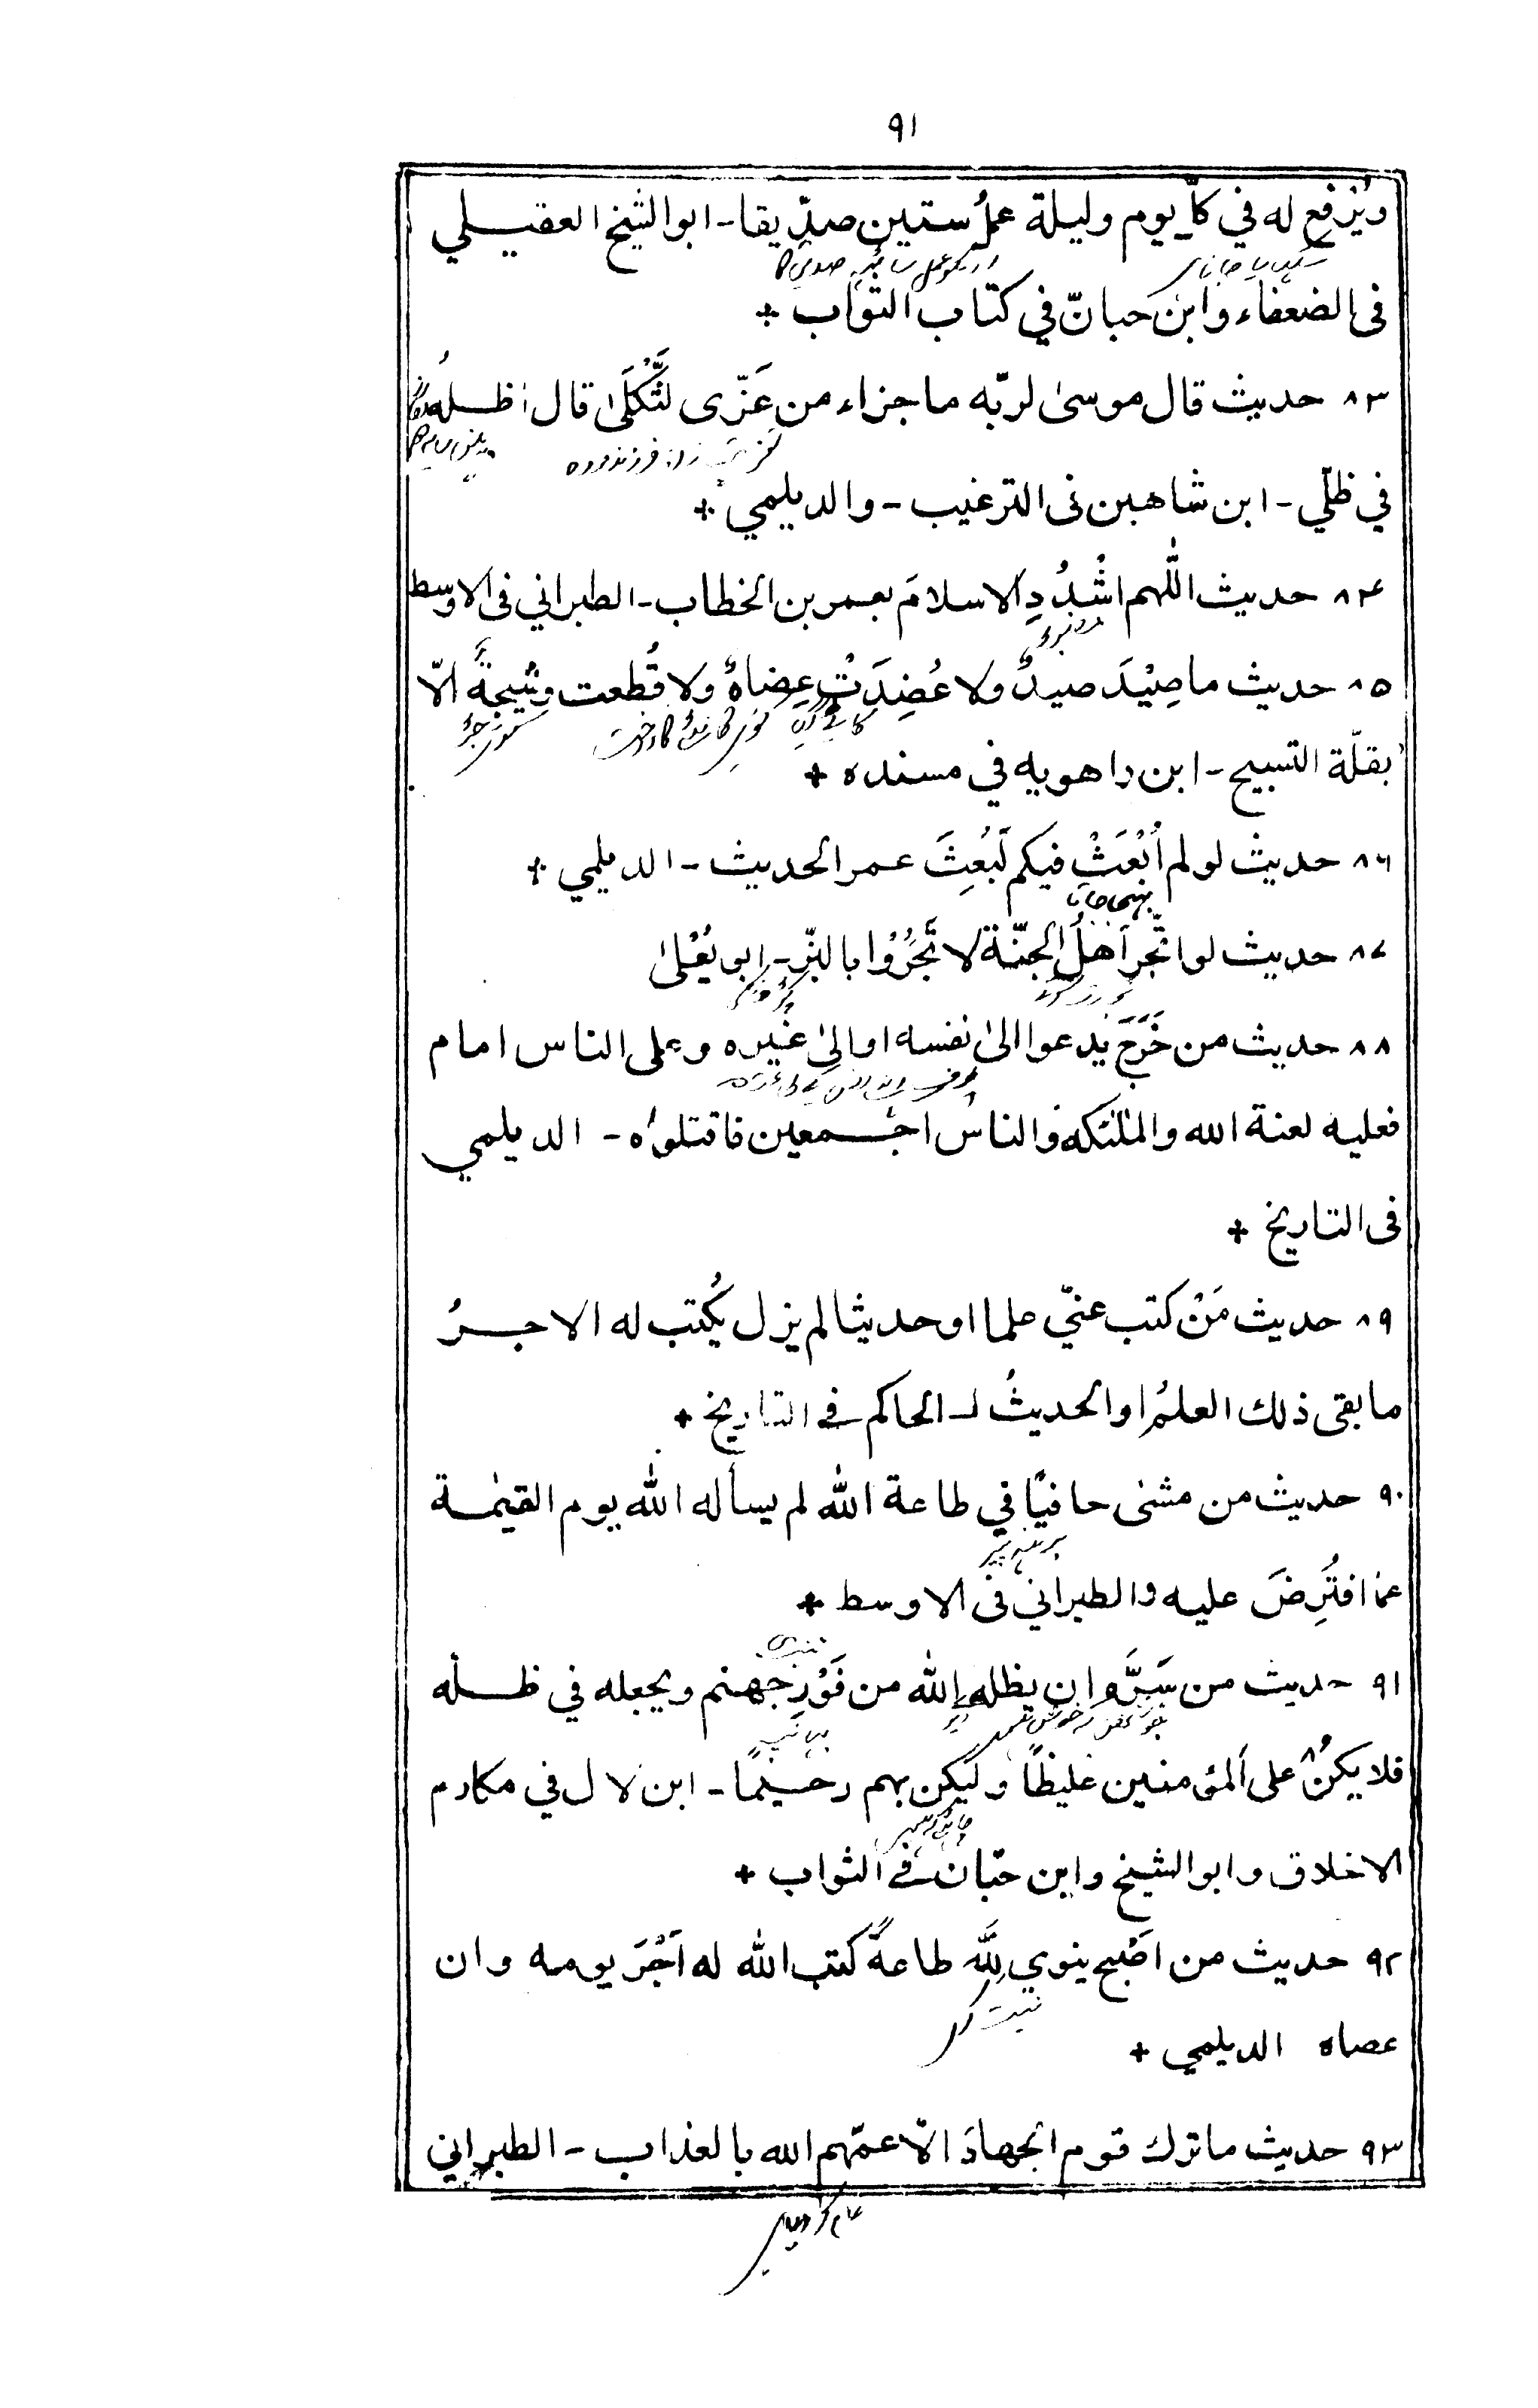 ٩١
ويُرفع له في كلّ يوم وليلة عملُ ستين صدّيقا - ابو الشيخ العقيلي
فى الضعفاء وابن حبانّ في كتاب الثواب +
٨٣ حديث قال موسىٰ لربّه ما جزاء من عَزّى لثَّكْلَىٰ قال اظلهُ
في ظلّي - ابن شاهين فى الترغيب - والديلمي +
٨٤ حديث اللّٰهم اشْدُدِ الاسلامَ بعمر بن الخطاب - الطبراني فى الاوسط
٨٥ حديث ما صِيْدَ صيدٌ ولا عُضِدَتْ عِضاهٌ ولا قُطعت وشيجةٌ الّا
بقلّة التسبيح - ابن راهويه في مسنده +
٨٦ حديث لو لم أُبْعَثْ فيكم لَبُعِثَ عمر الحديث - الديلمي +
٨٧ حديث لو اتّجر اَهلُ الجنّة لا تَّجَرُوْا بالبزّ - ابو يُعْلىٰ
٨٨ حديث من خَرَجَ يدعوا الىٰ نفسه او الىٰ غيره وعلى الناس امام
فعليه لعنة الله والملٰئكه والناس اجمعين فاقتلوه - الديلمي
فى التاريخ +
٨٩ حديث مَنْ كتب عنّي علما او حديثا لم يزل يُكتب له الاجرُ
ما بقى ذلك العلمُ او الحديثُ - الحاكم فے التاريخ +
٩٠ حديث من مشى حافيًا في طاعة الله لم يسأله الله يوم القيٰمة
عما افتُرِضَ عليه والطبراني فى الاوسط +
برهنه پير
٩١ حديث من سَرَّه ان يظله الله من فَوْرِ جهنم ويجعله في ظله
فلا يكنْ على المؤمنين غليظاً وليكن بهم رحيمًا - ابن لال في مكارم
الاخلاق وابو الشيخ وابن حبّان فے الثواب +
٩٢ حديث من اصْبح ينوي لِلّٰه طاعةً كتب الله له اَجْرَ يومه وان
نيت كر
عصاه الديلمي +
٩٣ حديث ما ترك قوم الجهادَ الّا عمّهم الله بالعذاب - الطبراني